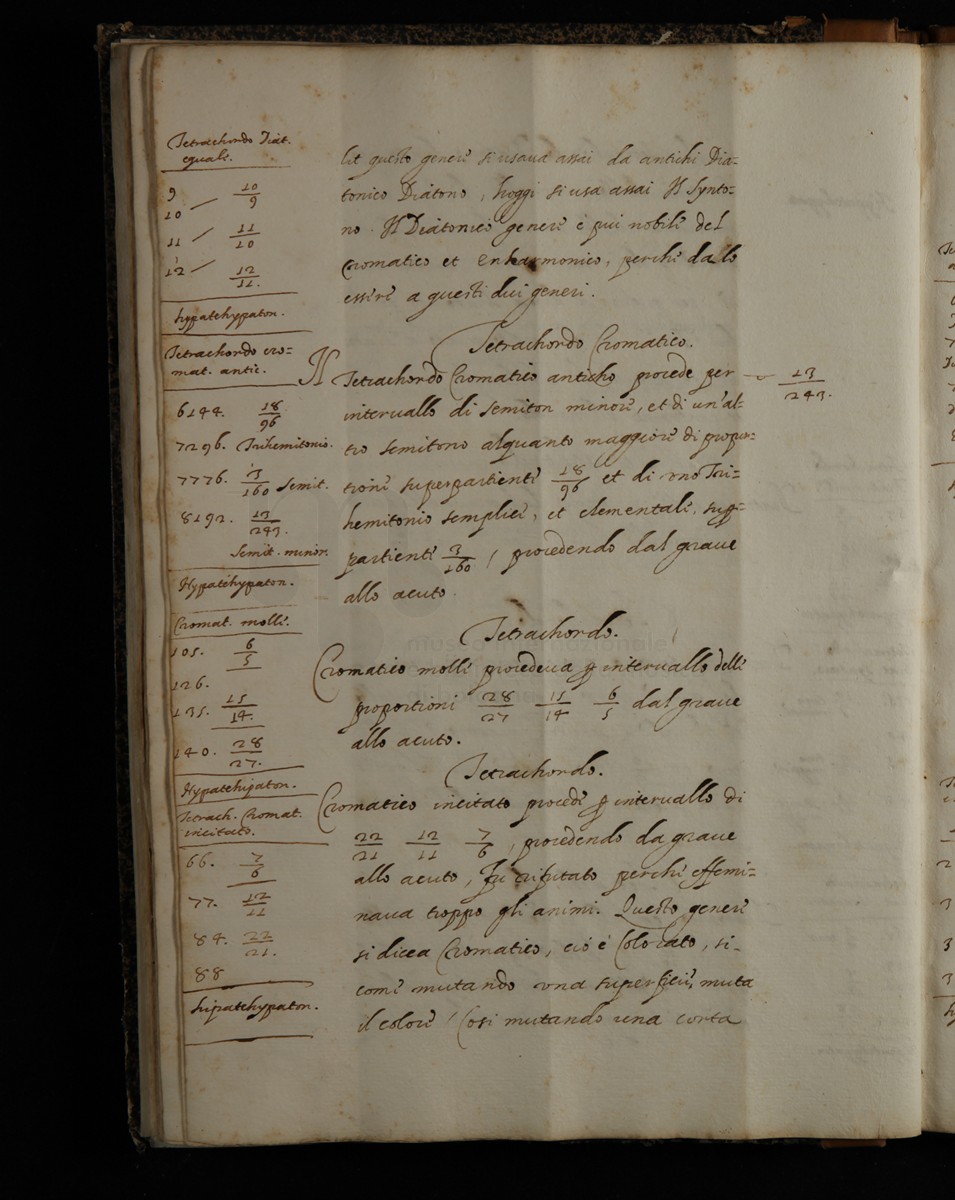 Tetrachordo Diat.
eguale.
9 10/9
10
11 11/10
12 12/11.
hypatehypaton.
Tetrachordo cro=
mat. antic.
6144. 18/96
7296. Trihemitonio.
7776. 3/160 Semit.
8192. 13/243.
Semit. minor.
Hypatehypaton.
Cromat. molle.
105. 6/5
126.
135. 15/14.
140. 28/27.
Hypatehipaton.
Tetrach. Cromat.
incitato.
66. 7/6
77. 12/11
84. 22/21.
88
hipatehypaton.
Et questo genere si usaua assai da antichi Dia=
tonico Diatono, hoggi si usa assai Il Synto=
no. Il Diatonico genere è piu nobile del
Cromatico et Enharmonico, perche da lo
essere a questi dui generi.
Tetrachordo Cromatico.
Il Tetrachordo Cromatico anticho procede per 13/243.
interuallo di semiton minore, et di un'al=
tro semitono alquanto maggiore di propor=
tione superpartiente 18/96 et di uno Tri=
hemitonio semplice, et elementale, sup=
partiente 3/160, procedendo dal graue
allo acuto.
Tetrachordo.
Cromatico molle procedeua p interuallo delle
proportioni 28/27 15/14 6/5 dal graue
allo acuto.
Tetrachordo.
Cromatico incitato procede p interuallo di
22/21 12/11 7/6, procedendo da graue
allo acuto, fu rifutato perche effemi=
naua troppo gli animi. Questo genere
si dicea Cromatico, ciò è Colorato, si-
come mutando una superficie, muta
il colore Cosi mutando una corta
museo internazionale